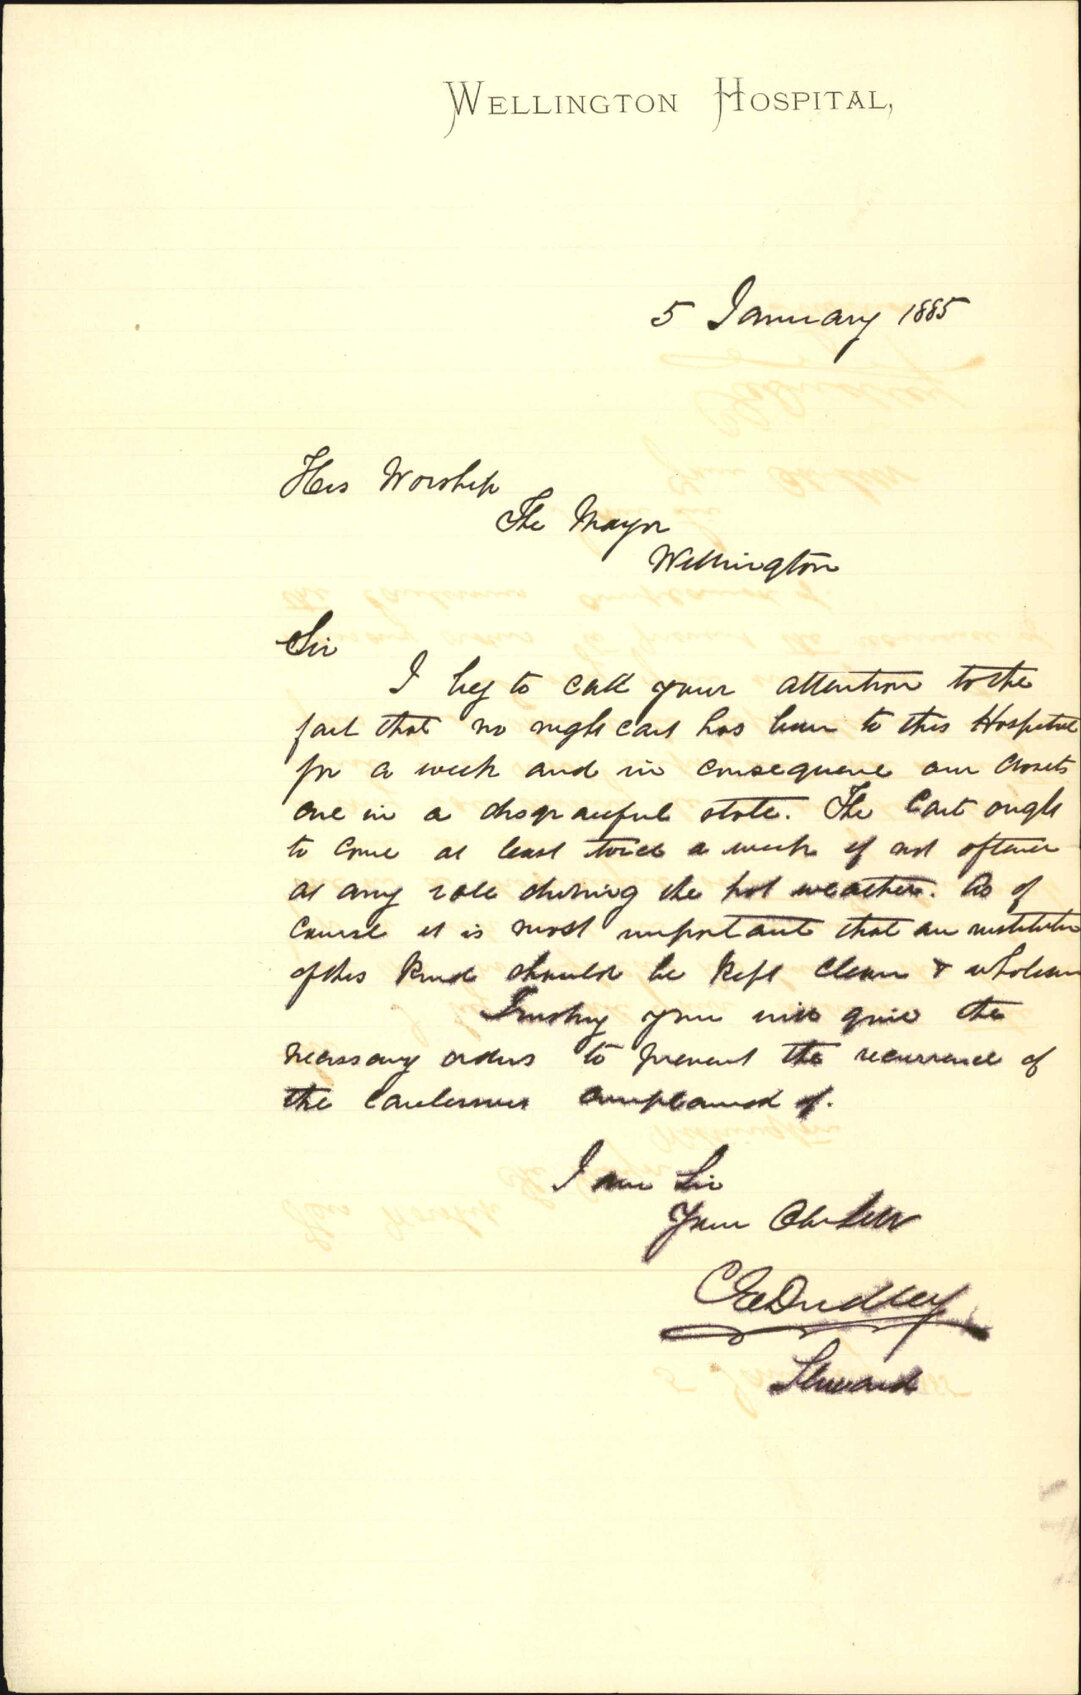 WELLINGTON HOSPITAL,
5 January 1885
His Worship
The Mayor
Wellington
Sir
I beg to call your attention to the
fact that no night cart has been to this Hospital
for a week and in consequence our closets
are in a disgraceful state. The Cart ought
to come at least twice a week if not oftener
at any rate during the hot weather. As of
course it is most important that an institution
of this kind should be kept clean & wholesome
Trusting you will give the
necessary orders to prevent the recurrence of
the Carelessness complained of.
I am Sir
Your Obt Servt
C E Dudley
Steward